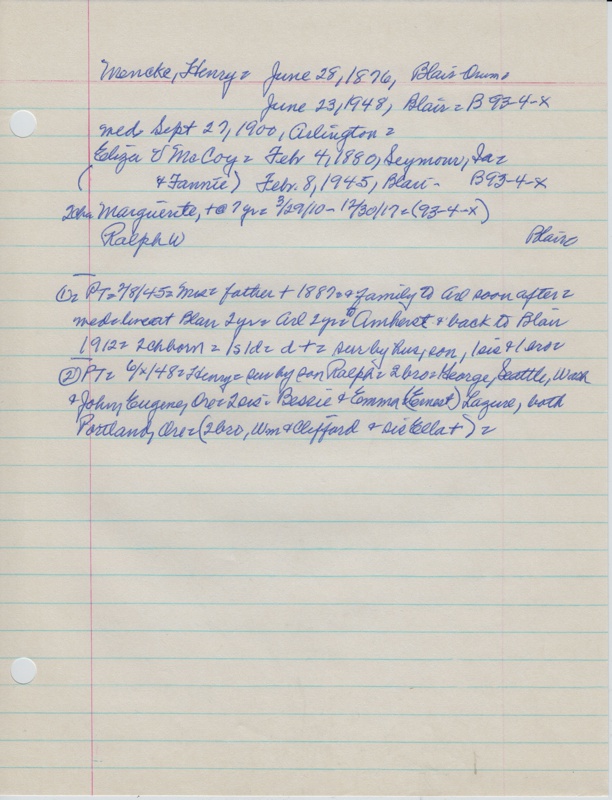 Mencke, Henry = June 28, 1876, Blair-Orum =
June 23, 1948, Blair = B 93-4-X
md = Sept 27, 1900, Arlington =
Eliza V McCoy = Febr 4, 1880, Seymour, Ia =
( & Fannie) Febr. 8, 1945, Blair - B93-4-X
2ch = Marguerite, + @ 7 yr = 3/29/10 - 12/30/17 = (93-4-X)
Ralph W Blair
① = PT = 2/8/45 = Mrs = father + 1887 = & family to Arl soon after =
md = lived at Blair 2yr = Arl 2yr = to Amherst & back to Blair
1912 = 2ch born = 1s 1d = d + = sur by hus, son, 1 sis & 1 bro =
② PT = 6/x/48 = Henry = sur by son Ralph = 2bro = George, Seattle, Wash
& John, Eugene, Ore = 2sis = Bessie & Emma (Ernest) Lazure, both
Portland, Ore = (2bro, Wm & Clifford & sis Ella +) =